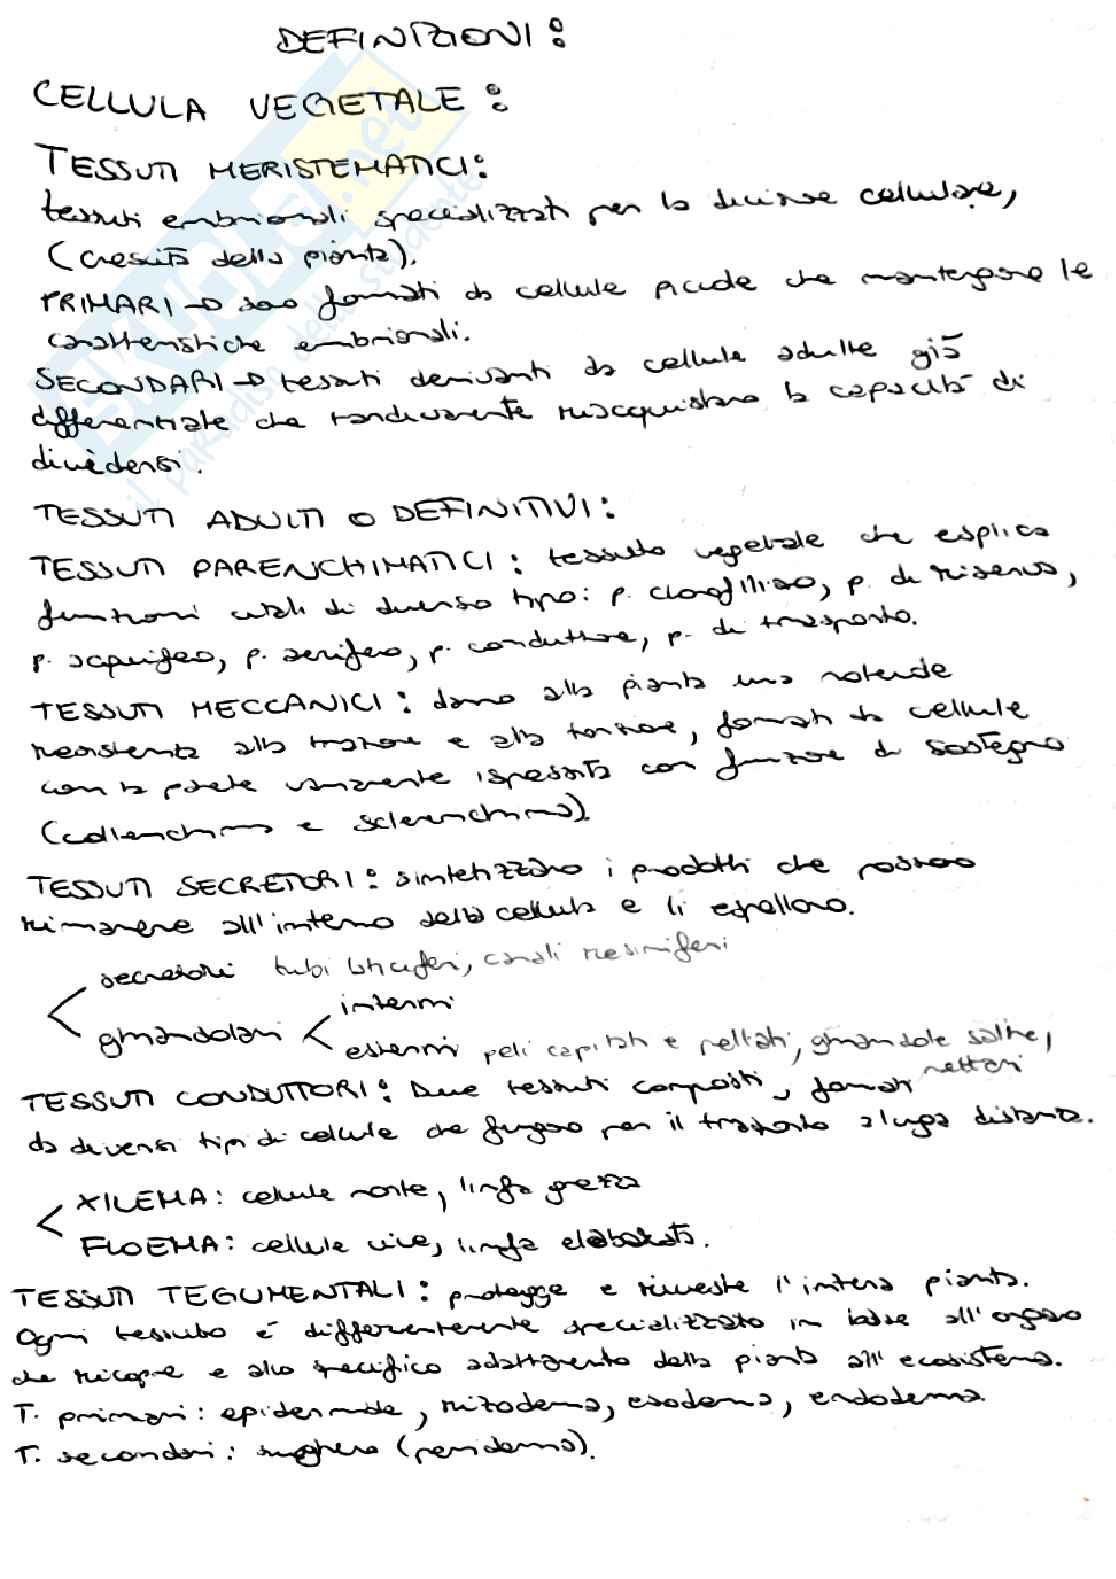 DEFINIZIONI:
CELLULA VEGETALE:
TESSUTI MERISTEMATICI:
tessuti embrionali specializzati per la divisione cellulare,
(crescita della pianta).
PRIMARI → sono formati da cellule piccole che mantengono le
caratteristiche embrionali.
SECONDARI → tessuti derivanti da cellule adulte già
differenziate che tardivamente riacquistano la capacità di
dividersi.
TESSUTI ADULTI O DEFINITIVI:
TESSUTI PARENCHIMATICI: tessuto vegetale che esplica
funzioni vitali di diverso tipo: p. clorofilliano, p. di riserva,
p. acquifero, p. aerifero, p. conduttore, p. di trasporto.
TESSUTI MECCANICI: danno alla pianta una notevole
resistenza alla trazione e alla torsione, formati da cellule
con la parete variamente ispessita con funzione di sostegno
(collenchima e sclerenchima).
TESSUTI SECRETORI: sintetizzano i prodotti che possono
rimanere all'interno della cellula e li espellono.
secretori tubi laticiferi, canali resiniferi
ghiandolari < interni
esterni peli capitati e peltati, ghiandole saline,
nettari
TESSUTI CONDUTTORI: Due tessuti composti, formati
da diversi tipi di cellule che fungono per il trasporto a lunga distanza.
XILEMA: cellule morte, linfa grezza
FLOEMA: cellule vive, linfa elaborata.
TESSUTI TEGUMENTALI: protegge e riveste l'intera pianta.
Ogni tessuto è differentemente specializzato in base all'organo
che ricopre e allo specifico adattamento della pianta all'ecosistema.
T. primari: epidermide, rizoderma, esoderma, endoderma.
T. secondari: sughero (periderma).
SKUOLA.net
il paradiso dello studente